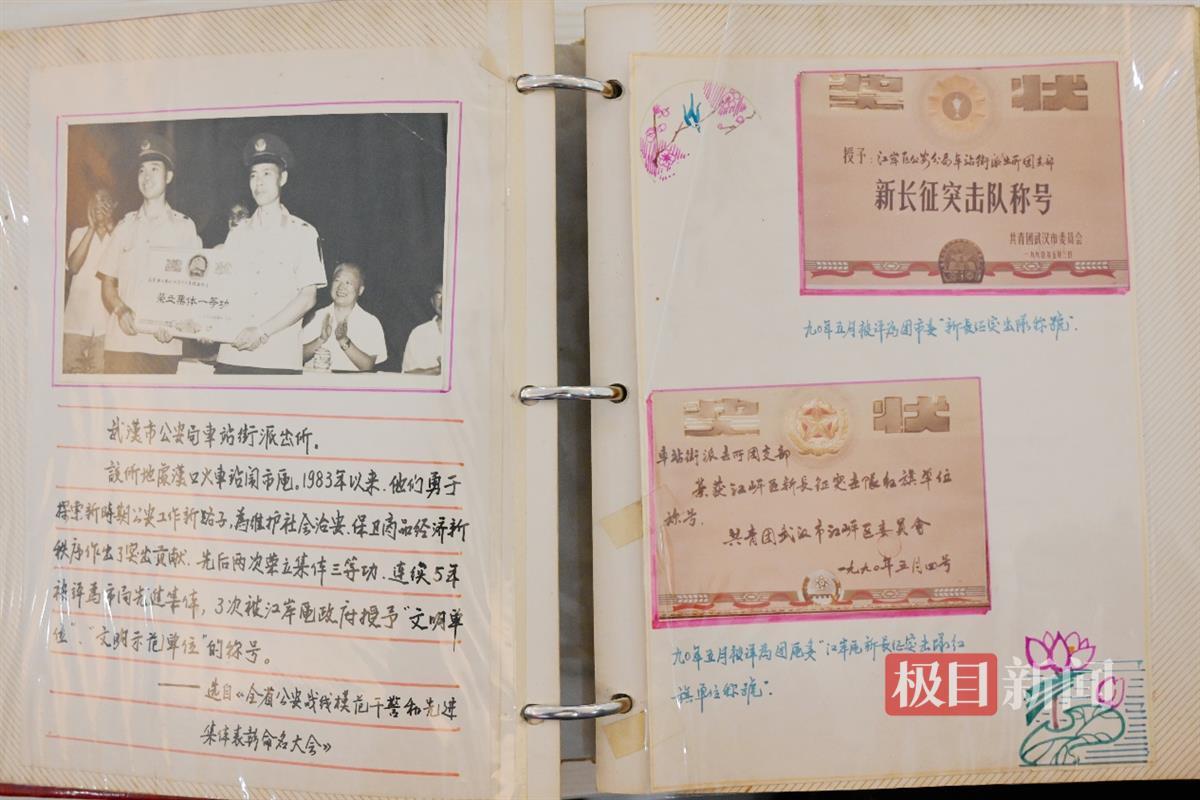 奖状
荣立集体一等功
武漢市公安局車站街派出所。
該所地處漢口火車站闹市區。1983年以来,他们勇于
探索新時期公安工作新路子,為维护社会治安、保卫商品经济新
秩序作出了突出贡献、先后两次荣立集体三等功、连续5年
被評為市局先進集体,3次被江岸區政府授予“文明單
位”、“文明示范單位”的称号。
——选自《全省公安战线模范干警和先進
集体表彰命名大会》
奖状
授予:江岸区公安分局车站街派出所团支部
新长征突击队称号
共青团武汉市委员会
一九九〇年五月
九〇年五月被評為团市委“新長征突击隊称號”.
奖状
車站街派出所团支部
荣获江岍区新长征突击队红旗单位
称号.
共青团武汉市江岍区委員會
一九九〇年五月四号
九〇年五月被評為团區委“江岸區新長征突击隊红
旗單位称號”.
极目新闻